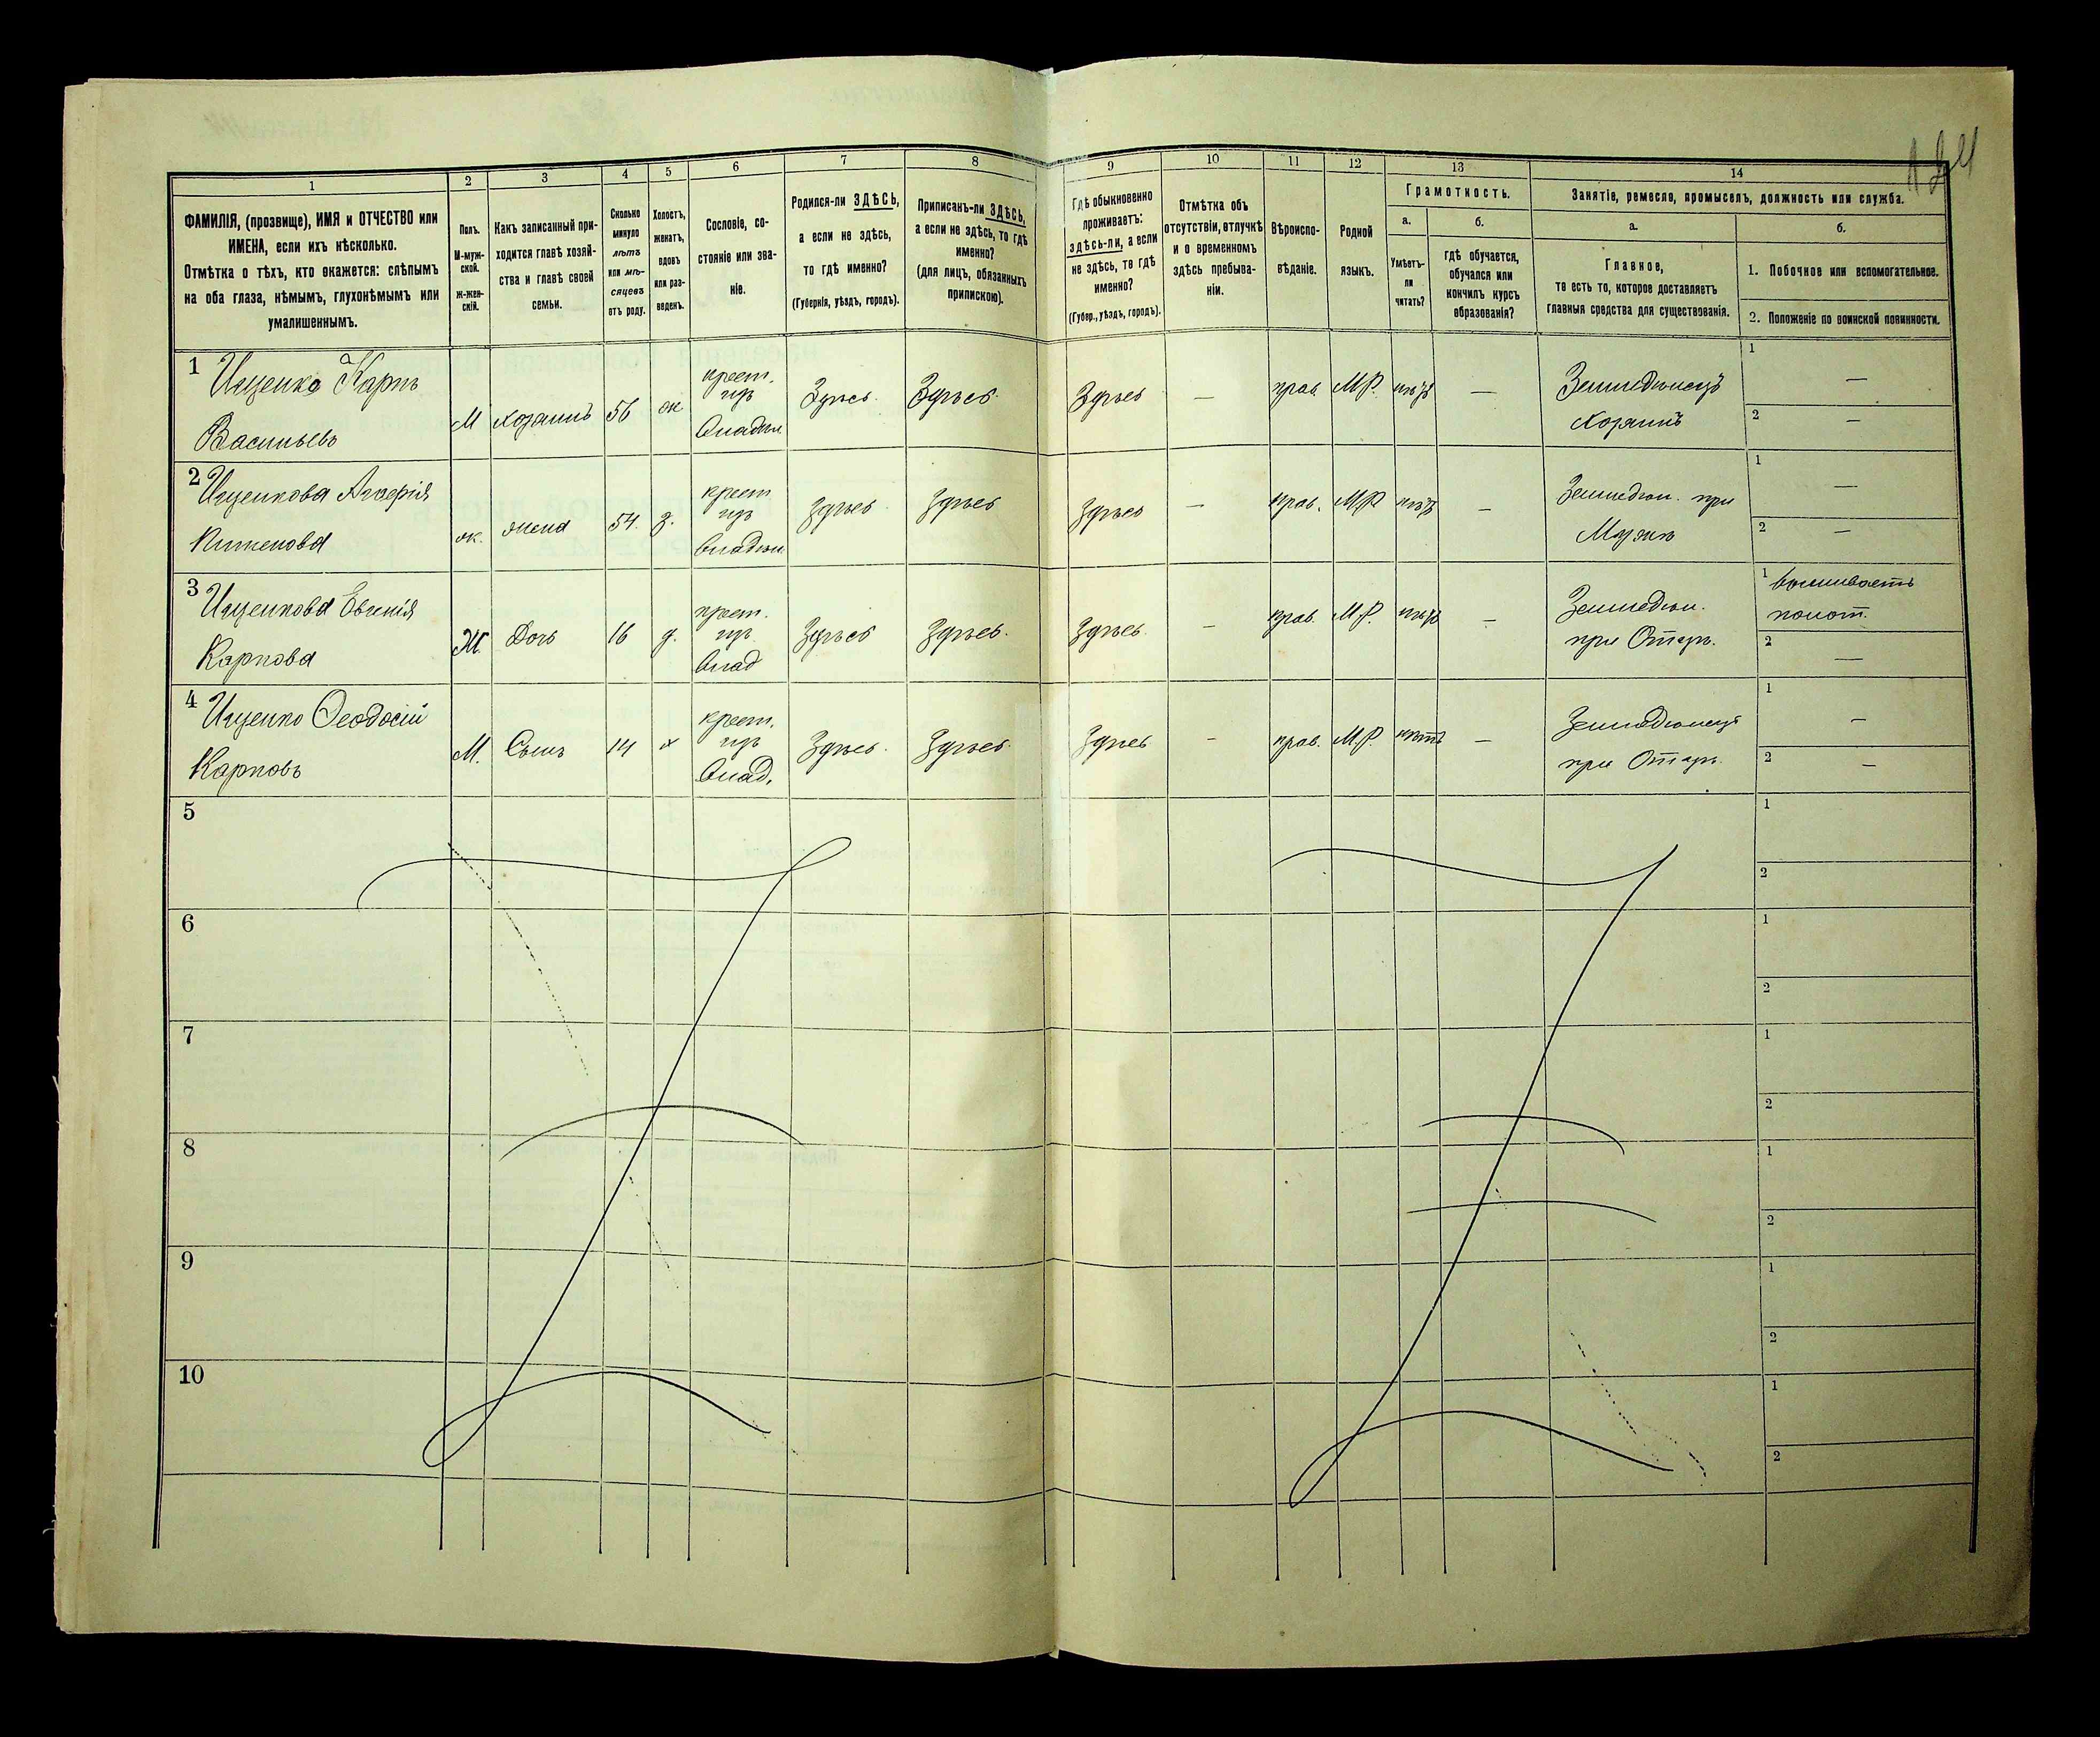 124
1
2
3
4
5
6
7
8
9
10
11
12
13
14
ФАМИЛІЯ, (прозвище), ИМЯ и ОТЧЕСТВО или
ИМЕНА, если ихъ нѣсколько.
Отмѣтка о тѣхъ, кто окажется: слѣпымъ
на оба глаза, нѣмымъ, глухонѣмымъ или
умалишеннымъ.
Полъ.
М-муж-
ской.
ж-жен-
скій.
Какъ записанный при-
ходится главѣ хозяй-
ства и главѣ своей
семьи.
Сколько
минуло
лѣтъ
или мѣ-
сяцевъ
отъ роду.
Холостъ,
женатъ,
вдовъ
или раз-
веденъ.
Сословіе, со-
стояніе или зва-
ніе.
Родился-ли ЗДѢСЬ,
а если не здѣсь,
то гдѣ именно?
(Губернія, уѣздъ, городъ).
Приписанъ-ли ЗДѢСЬ,
а если не здѣсь, то гдѣ
именно?
(для лицъ, обязанныхъ
припискою).
Гдѣ обыкновенно
проживаетъ:
здѣсь-ли, а если
не здѣсь, то гдѣ
именно?
(Губер., уѣздъ, городъ).
Отмѣтка объ
отсутствіи, отлучкѣ
и о временномъ
здѣсь пребыва-
ніи.
Вѣроиспо-
вѣданіе.
Родной
языкъ.
Грамотность.
а.
Умѣетъ-
ли
читать?
б.
гдѣ обучается,
обучался или
кончилъ курсъ
образованія?
Занятіе, ремесло, промыселъ, должность или служба.
а.
Главное,
то есть то, которое доставляетъ
главныя средства для существованія.
б.
1. Побочное или вспомогательное.
2. Положеніе по воинской повинности.
1 Ищенко Карпъ
Васильевъ
М хозяинъ 56 ж
крест.
изъ
Владѣл
Здѣсь Здѣсь Здѣсь — прав. М.Р. нѣтъ —
Земледѣлецъ
Хозяинъ
1 —
2 —
2 Ищенкова
Пименова
ж. жена 54. з.
крест
изъ
владѣл
Здѣсь Здѣсь Здѣсь — прав. М.Р. нѣтъ —
Земледѣл. при
Мужѣ
1 —
2 —
3 Ищенкова Евгенія
Карпова
Ж. Дочь 16 д.
крест.
изъ
Влад
Здѣсь Здѣсь. Здѣсь — прав. М.Р. нѣтъ —
Земледѣл.
при Отцѣ.
1 вышиваетъ
полот.
2 —
4 Ищенко Ѳеодосій
Карповъ
М. Сынъ 14 х
крест.
изъ
Влад.
Здѣсь. Здѣсь. Здѣсь — прав. М.Р. нѣтъ —
Земледѣлецъ
при Отцѣ.
1 —
2 —
5
1
2
6
1
2
7
1
2
8
1
2
9
1
2
10
1
2